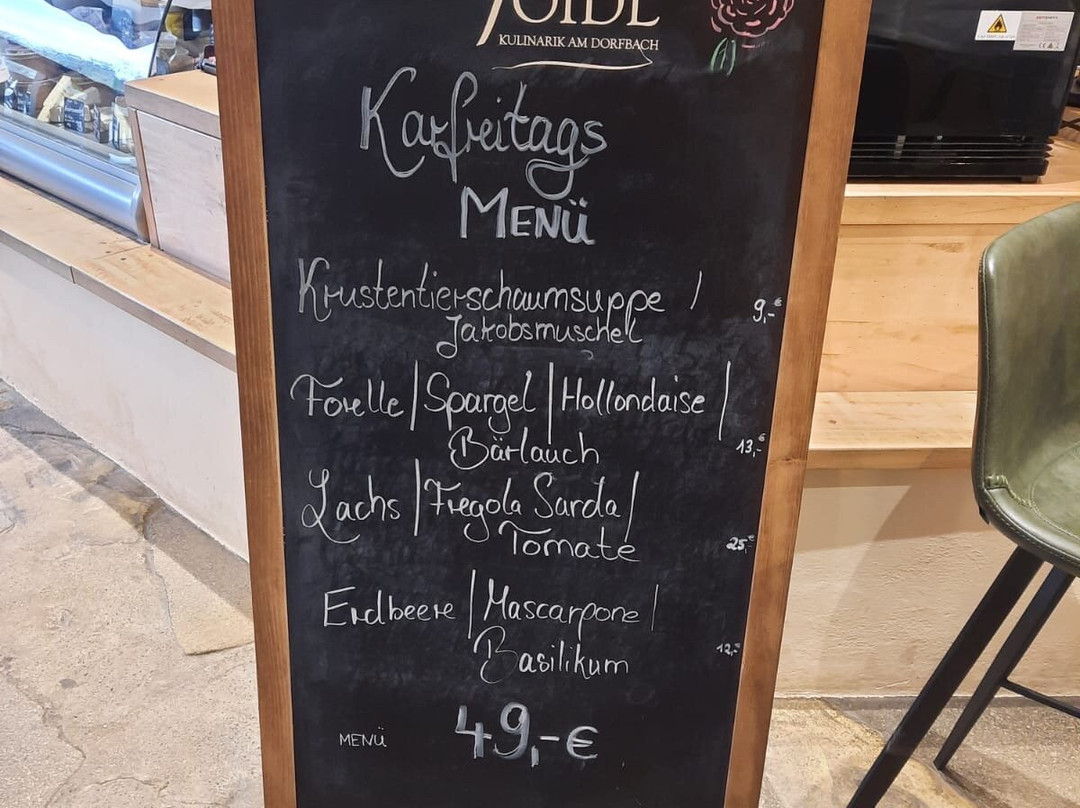 KULINARIK AM DORFBACH
Karfreitags
MENÜ
Krustentierschaumsuppe /
Jakobsmuschel 9,-€
Forelle | Spargel | Hollondaise |
Bärlauch 13,-€
Lachs | Fregola Sarda /
Tomate 25,-€
Erdbeere | Mascarpone |
Basilikum 12,-€
MENÜ 49,-€